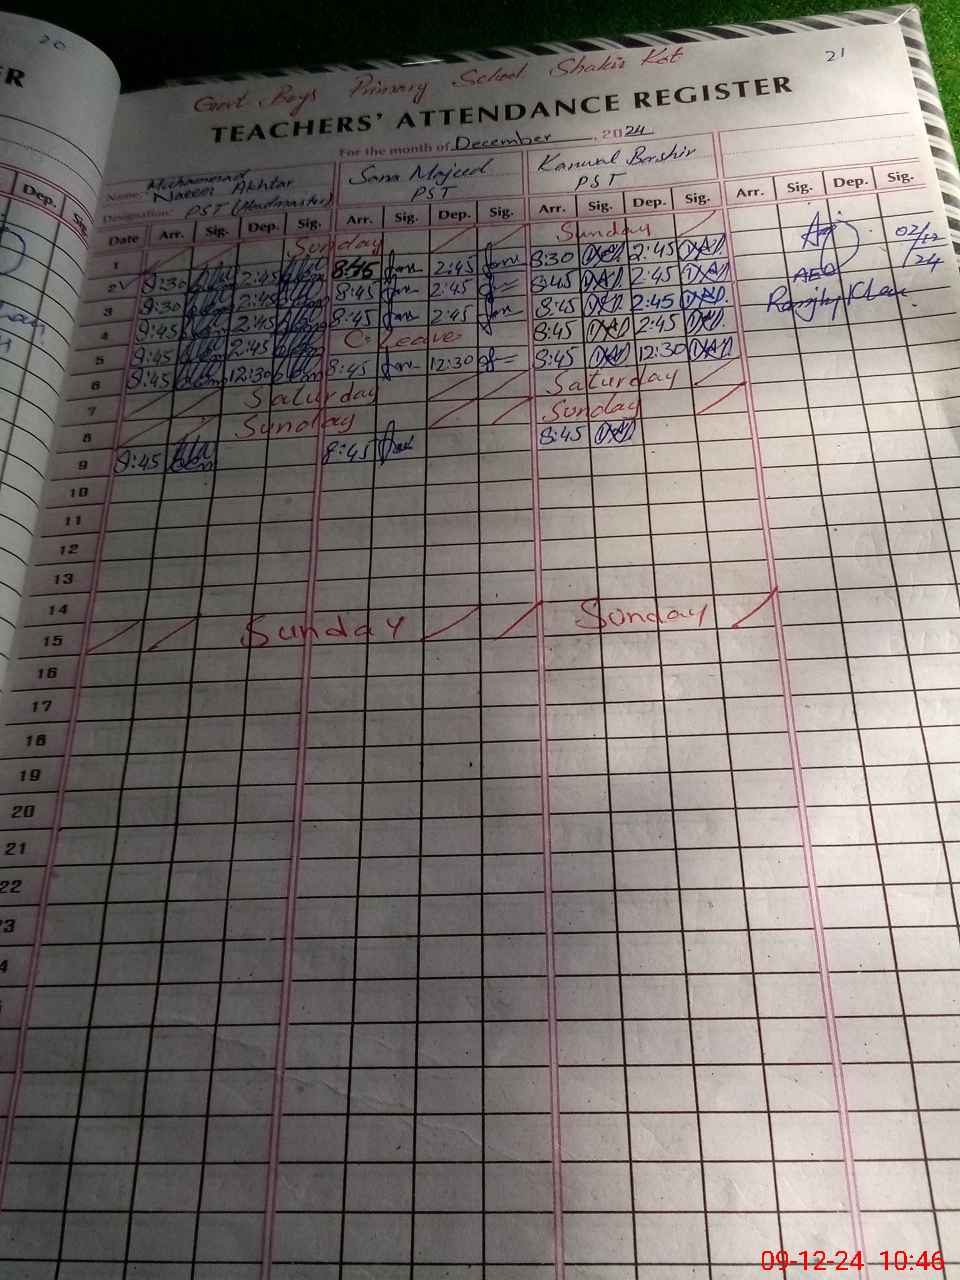 20
21
ER
Govt Boys Primary School Shakir Kot
TEACHERS' ATTENDANCE REGISTER
For the month of December, 2024
Name: Muhammad Naeem Akhtar Sana Majeed Kanwal Barshir
Designation: PST (Headmaster) PST PST
Dep. Sig.
Date Arr. Sig. Dep. Sig. Arr. Sig. Dep. Sig. Arr. Sig. Dep. Sig. Arr. Sig. Dep. Sig.
1 Sunday Sunday
2 8:30 2:45 8:45 2:45 8:30 2:45 02/12/24
3 8:30 2:45 8:45 2:45 8:45 2:45 AEO
4 8:45 2:45 8:45 2:45 8:45 2:45
5 8:45 2:45 C. Leave 8:45 2:45
6 8:45 12:30 8:45 12:30 8:45 12:30
7 Saturday Saturday
8 Sunday Sunday
9 8:45 8:45 8:45
10
11
12
13
14
15 Sunday Sunday
16
17
18
19
20
21
22
23
4
09-12-24 10:46